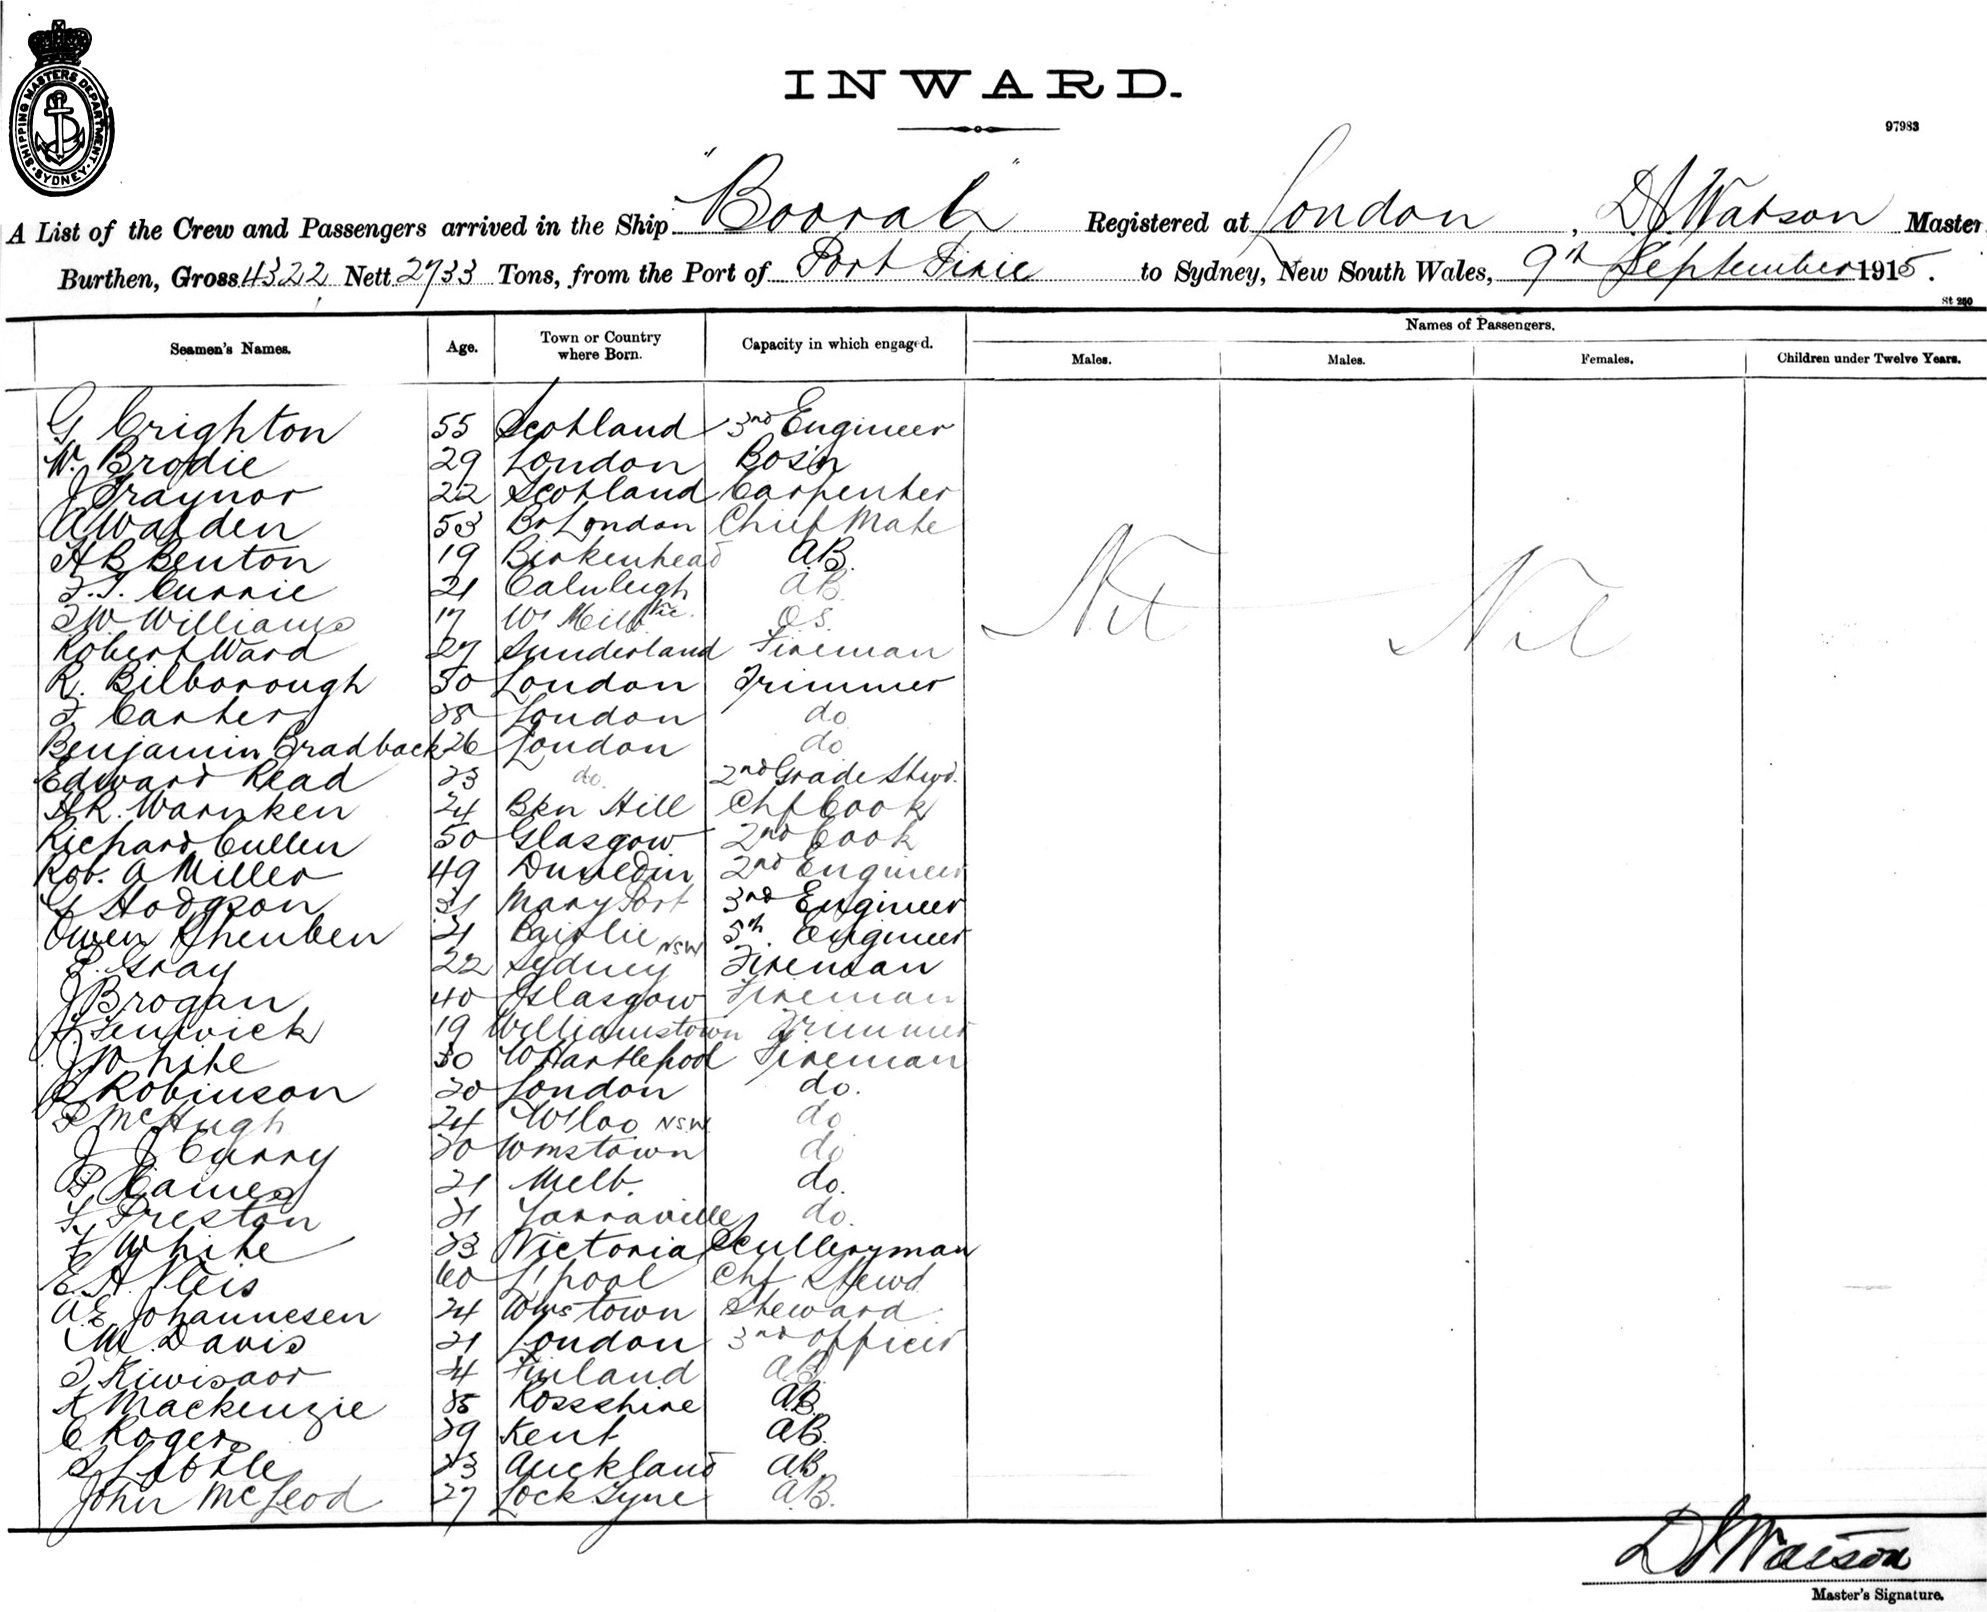 SHIPPING MASTERS DEPARTMENT · SYDNEY ·
INWARD.
97983
A List of the Crew and Passengers arrived in the Ship "Boorah" Registered at London, D J Watson Master
Burthen, Gross 4322 Nett 2733 Tons, from the Port of Port Pirie to Sydney, New South Wales, 9th September 1915.
St 250
Names of Passengers.
Seamen's Names. Age. Town or Country where Born. Capacity in which engaged. Males. Males. Females. Children under Twelve Years.
G Crighton 55 Scotland 3rd Engineer
W. Brodie 29 London Bos'n
J Traynor 22 Scotland Carpenter
A Walden 53 London Chief Mate
H B Benton 19 Birkenhead A.B.
Nil Nil
Currie 21 A.B.
Williams 17 O.S.
Robert Ward 27 Sunderland Fireman
R. Bilborough 30 London Trimmer
Carter 38 London do
Benjamin Bradback 26 London do
Edward Read 23 do 2nd Grade Stwd.
Warnken 24 Bkn Hill Chf Cook
Richard Cullen 50 Glasgow 2nd Cook
Rob. A Miller 49 Dunedin 2nd Engineer
G Hodgson 31 Mary Port 3rd Engineer
Owen 21 NSW 5th Engineer
Gray 22 Sydney Fireman
J Brogan 40 Glasgow Fireman
Fenwick 19 Williamstown Trimmer
J White 30 W Hartlepool Fireman
Robinson 30 London do.
McHugh 24 W'loo NSW do
J J Curry 20 Wmstown do
21 Melb. do.
Preston 21 Yarraville do.
F White 23 Victoria Sculleryman
E. H. 60 L'pool Chf Stewd
A. E. Johannesen 24 Wmstown Steward
M Davis 21 London 3rd Officer
24 Finland A.B.
K Mackenzie 35 Rossshire A.B.
C Rogers 39 Kent A.B.
Little 23 Auckland A.B.
John McLeod 27 A.B.
D J Watson
Master's Signature.